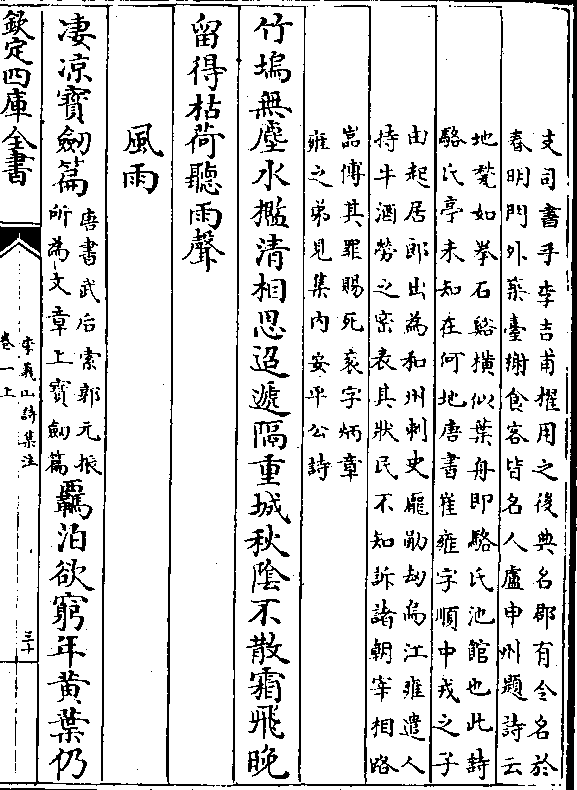 支司書手李吉甫擢用之後典名郡有令名於
春明門外築臺榭食客皆名人盧申州題詩云
地甃如拳石谿橫似葉舟即駱氏池館也此詩
駱氏亭未知在何地唐書崔雍字順中戎之子
由起居郎出為和州刺史龎勛刼烏江雍遣人
持牛酒勞之宻表其狀民不知訴諸朝宰相路
巖傅其罪賜死衮字炳章
雍之弟見集内安平公詩
竹塢無塵水檻清相思迢遞隔重城秋陰不散霜飛晚
留得枯荷聽雨聲
風雨
凄凉寳劒篇唐書武后索郭元振所為文章上寳劒篇羈泊欲窮年黄葉仍
欽定四庫全書
李義山詩集注
卷一上
三十